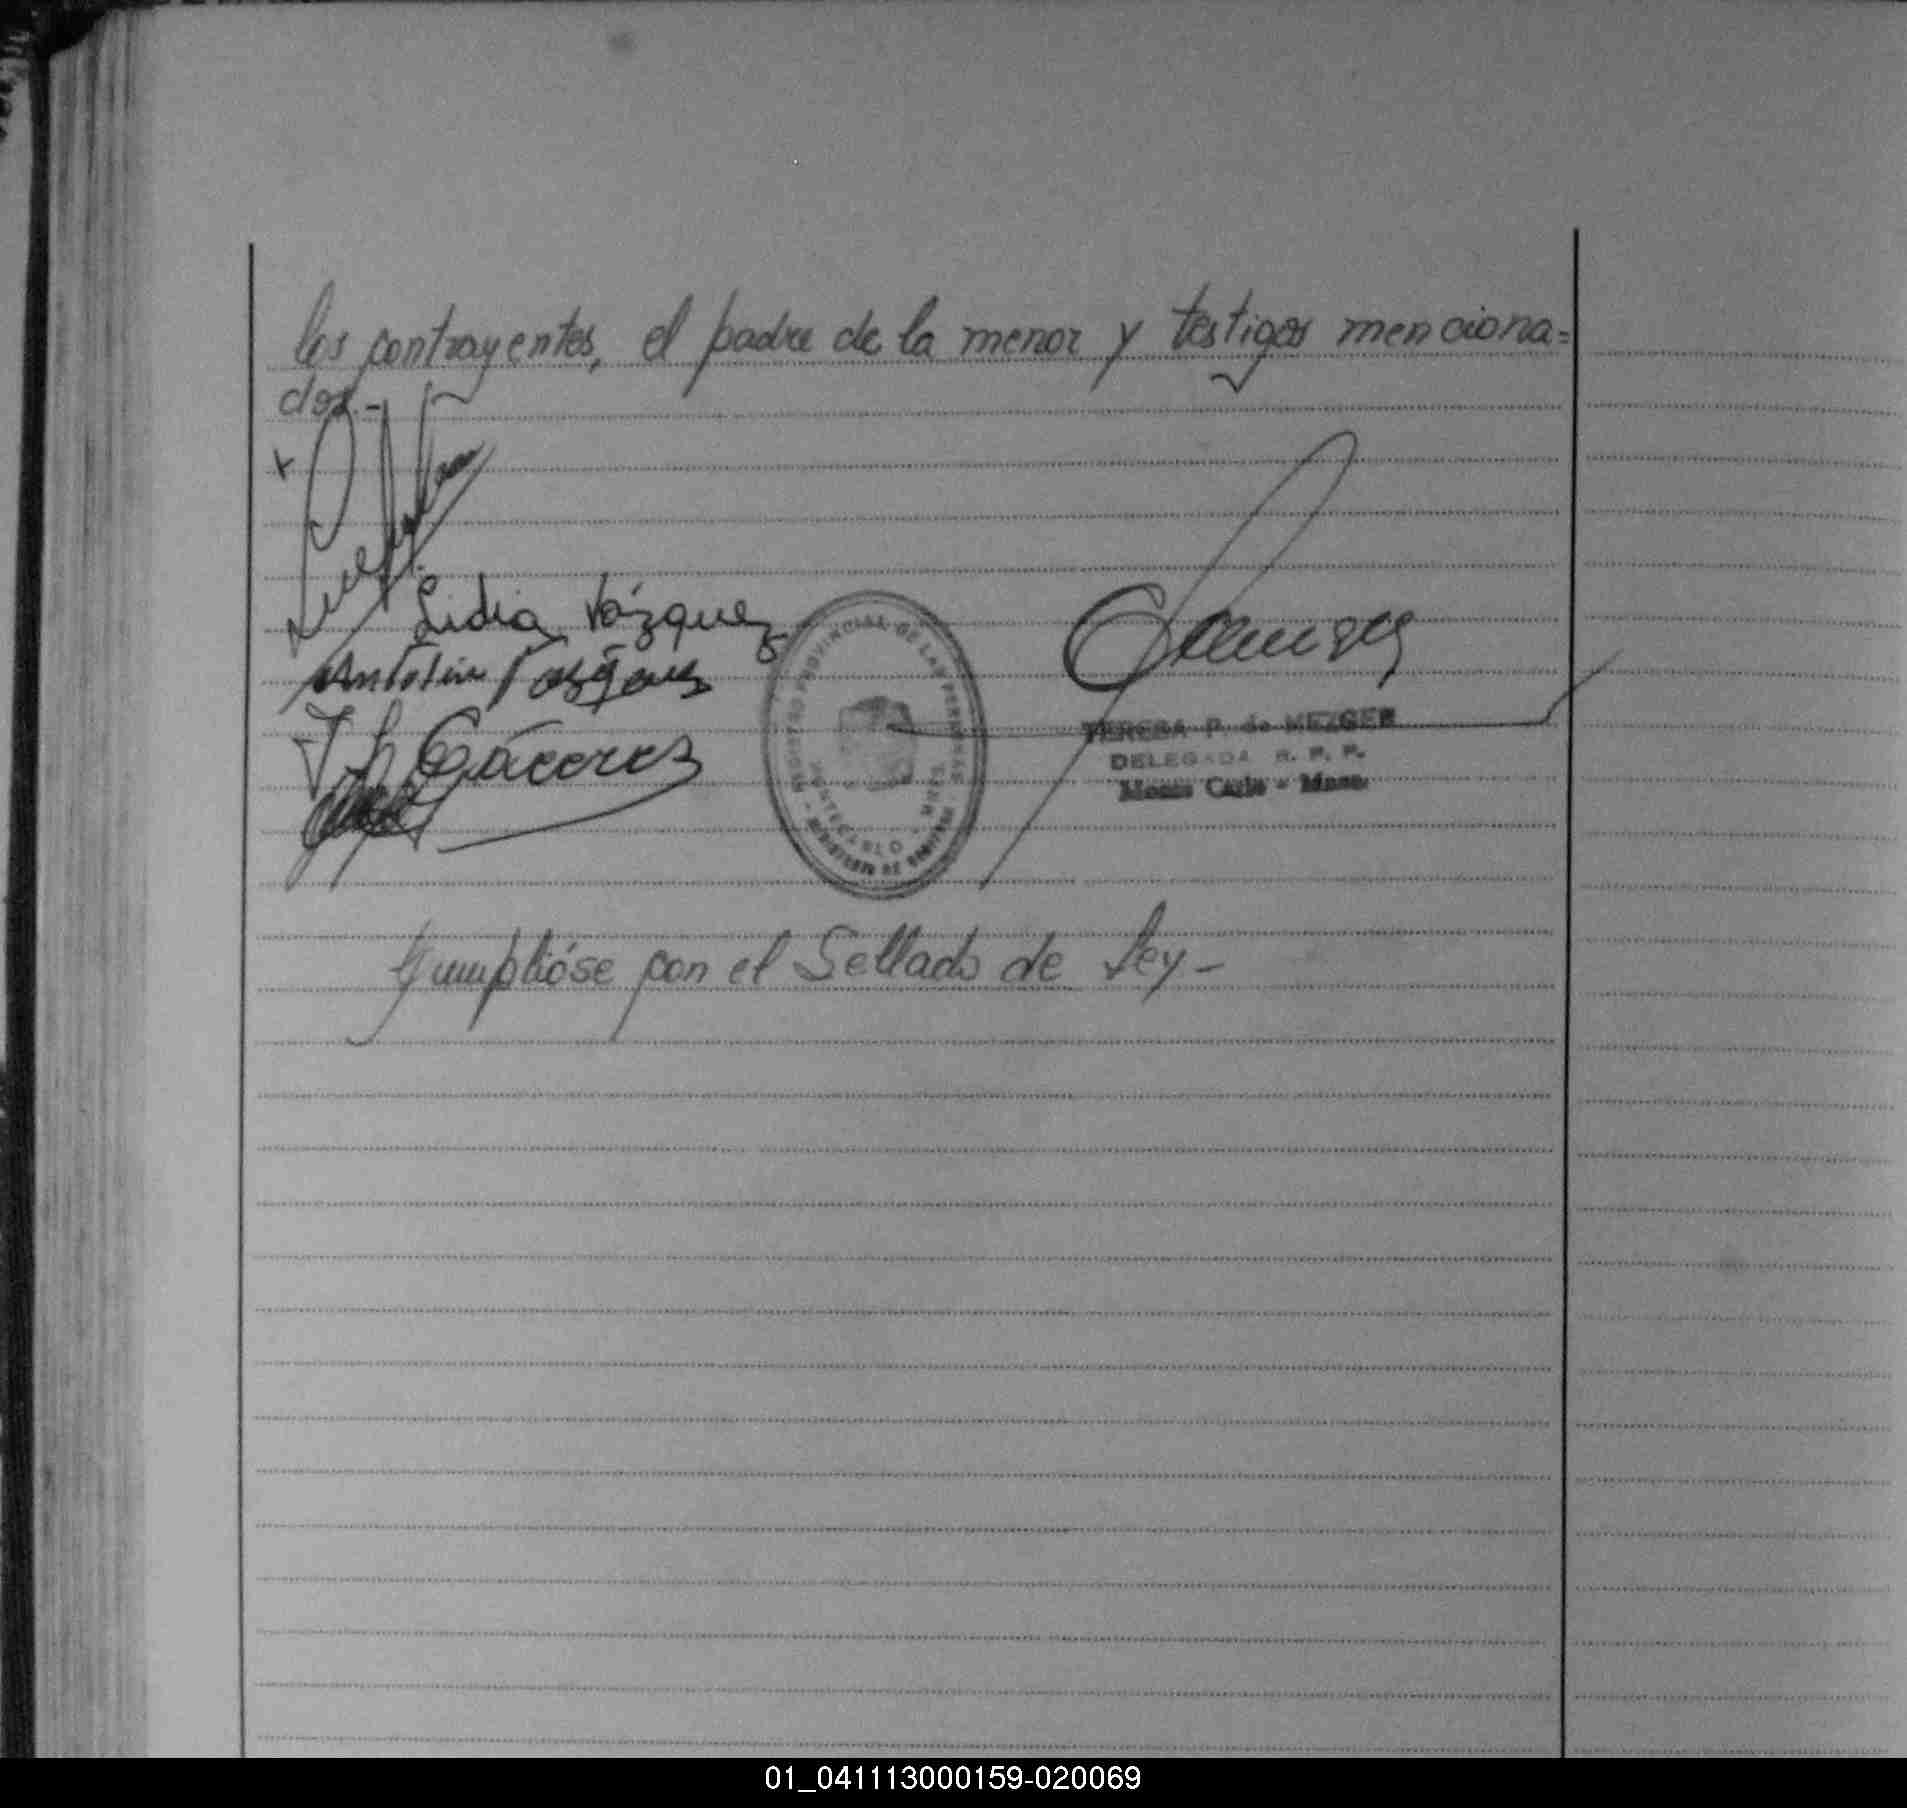 los contrayentes, el padre de la menor y testigos menciona=
dos.-
Lidia Vázquez
Antolin Vazquez
Cáceres
REGISTRO PROVINCIAL DE LAS PERSONAS
MONTECARLO - MNES.
MINISTERIO DE GOBIERNO
TERESA P. de MEZGER
DELEGADA R. P. P.
Monte Carlo - Mnes.
Cumplióse con el Sellado de Ley-
01_041113000159-020069